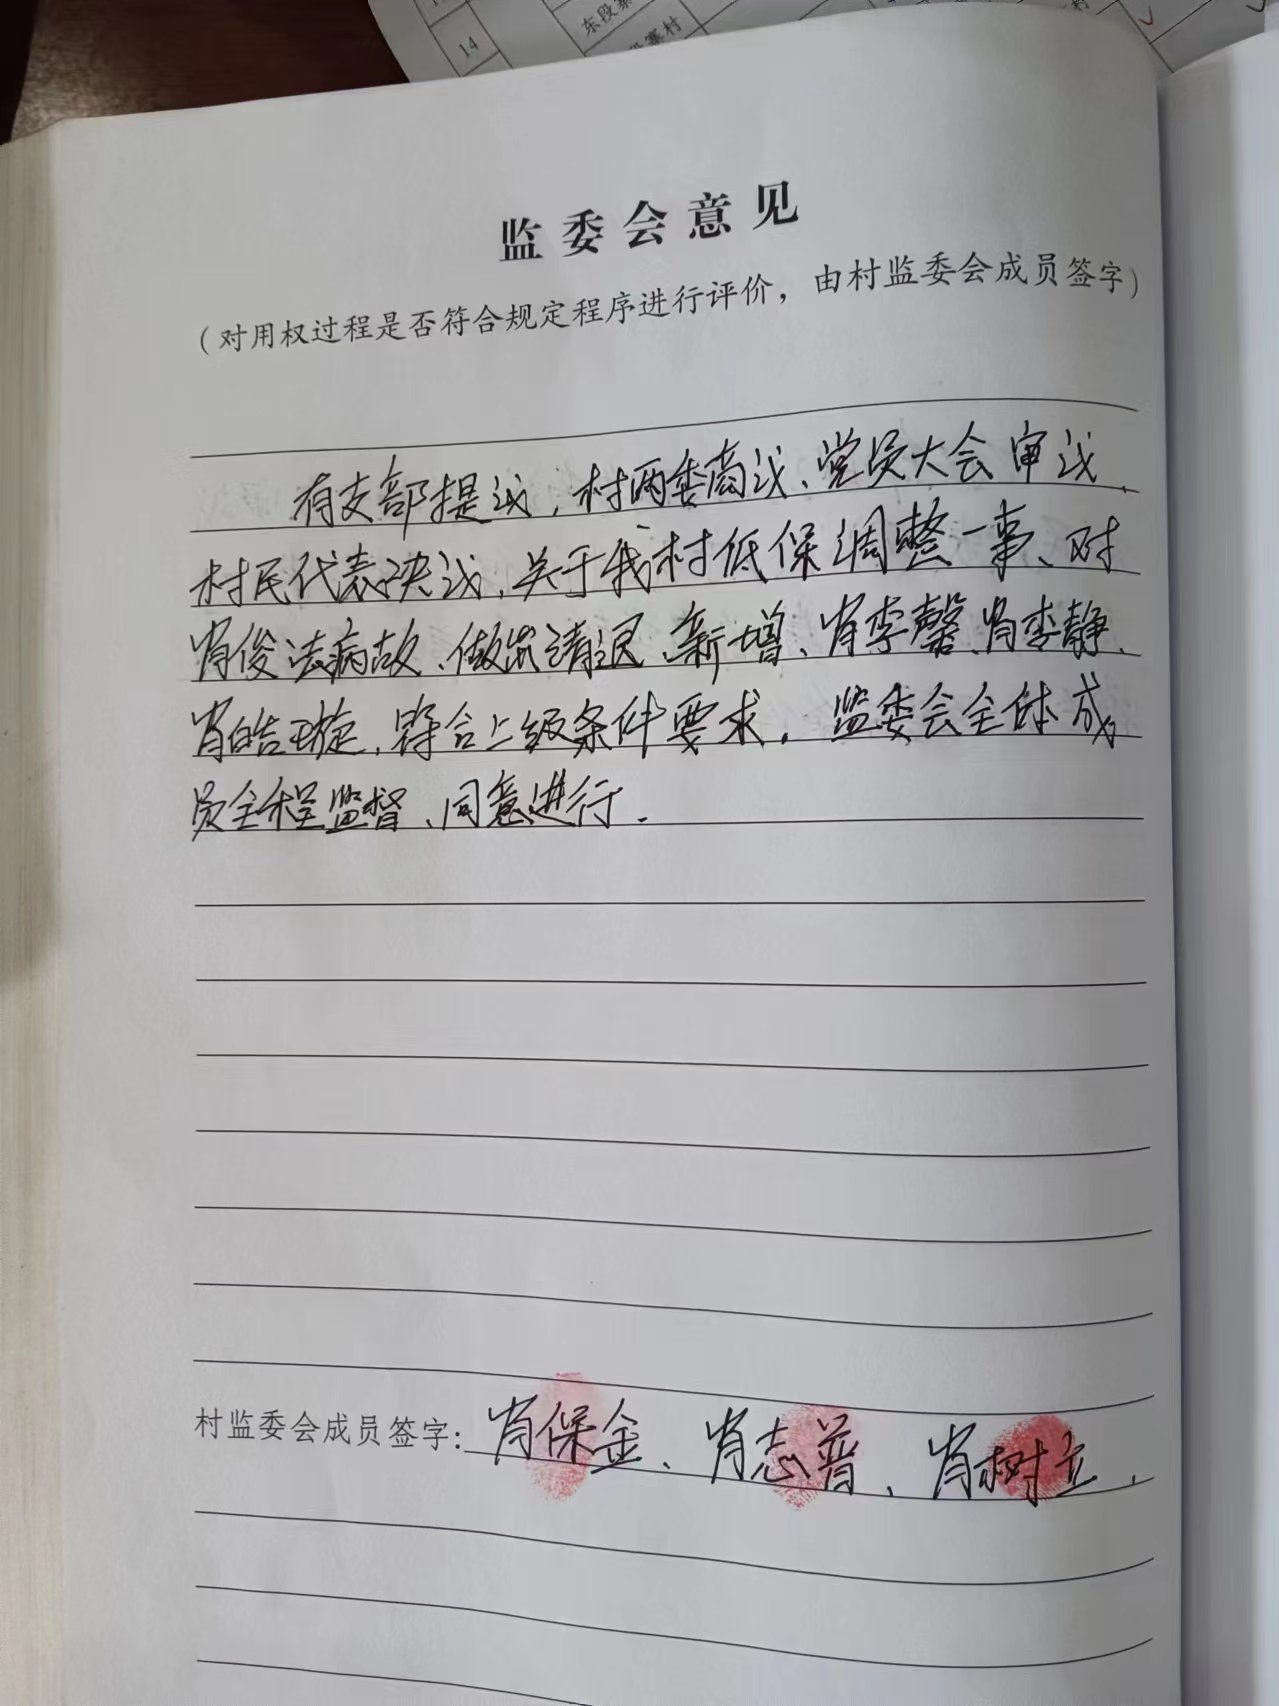 14
东段寨
寨村
村
监委会意见
（对用权过程是否符合规定程序进行评价，由村监委会成员签字）
有支部提议，村两委商议、党员大会审议、
村民代表决议，关于我村低保调整一事、对
肖俊法病故、做出清退、新增、肖李馨、肖李静、
肖皓璇，符合上级条件要求，监委会全体成
员全程监督、同意进行.
村监委会成员签字：肖保金、肖志普、肖树立、